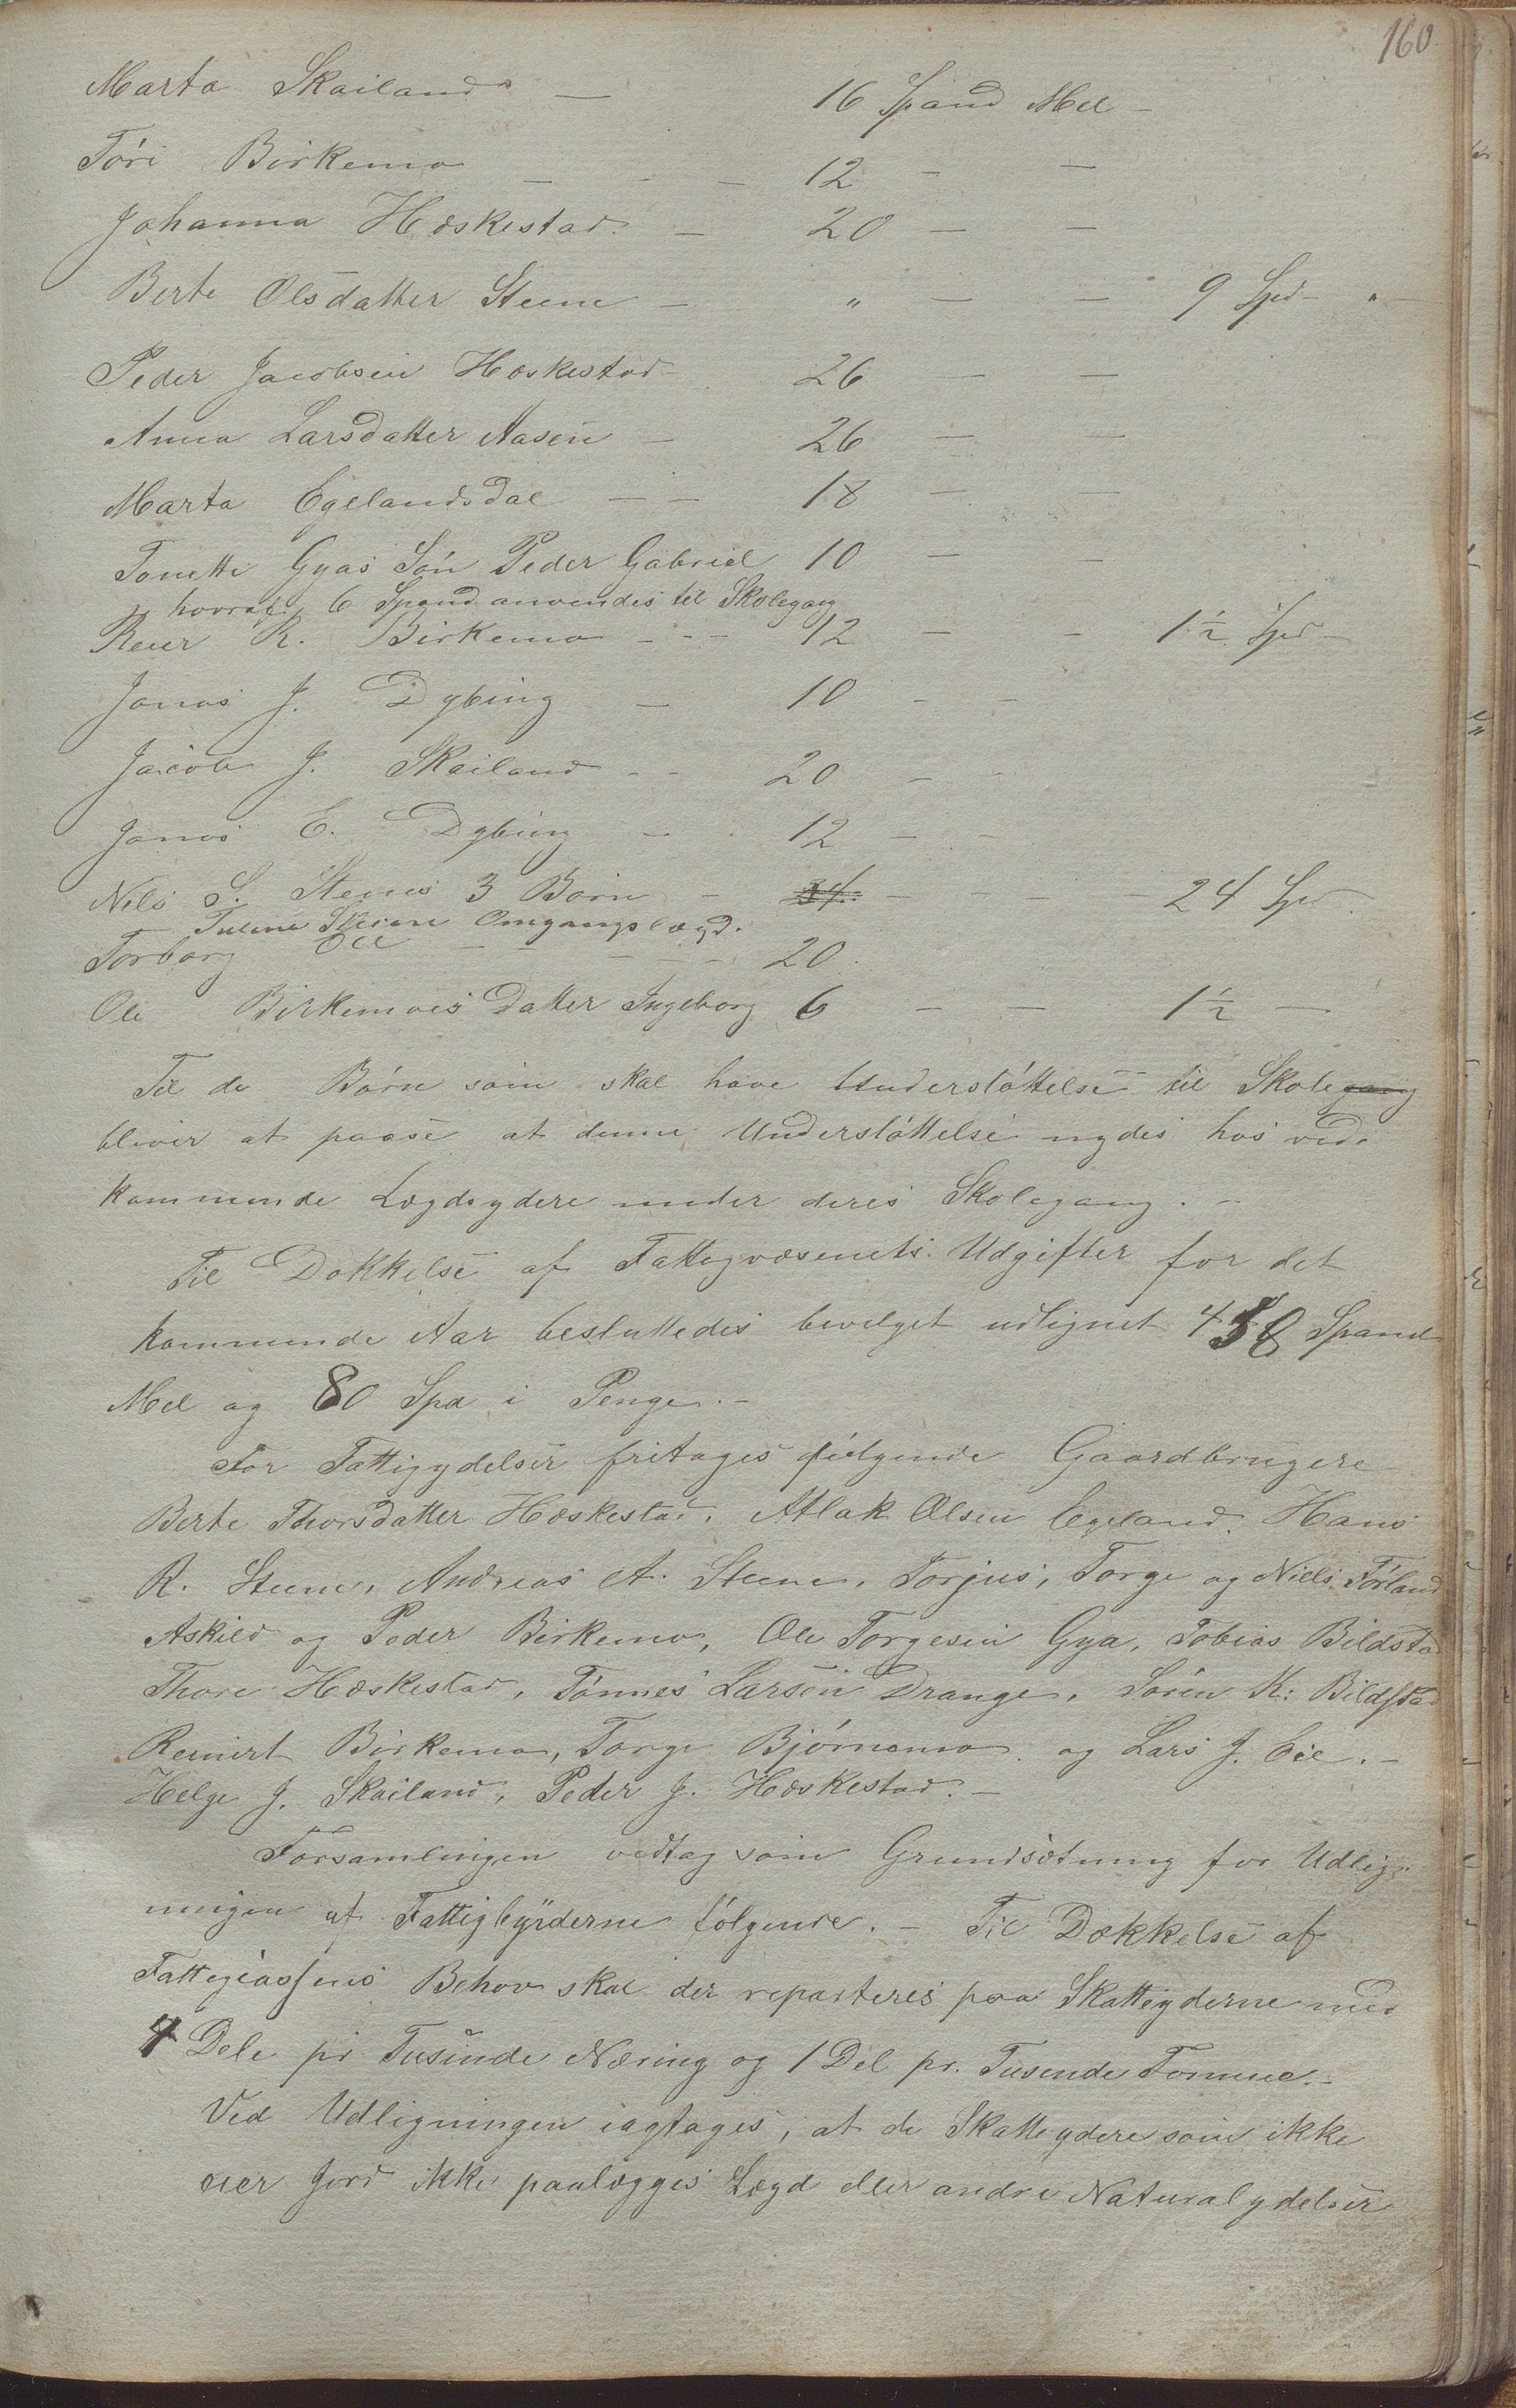 160.
Marta Skailand — 16 Spand Mel —
Tóri Birkemo — - - 12 — —
Johanna Hæskestad. — 20 — —
Berte Olsdatter Steene — " — — 9 Spd - " —
Peder Jacobsen Hæskestad - 26 — —
Anna Larsdatter Aasen — 26 — —
Marta Egelandsdal — — 18 — —
Tonette Gyas Són Peder Gabriel 10 — —
hvoraf 6 Spand anvendes til Skolegang
Reier R. Birkemo - - - 12 — - 1½ Spd —
Jonas J. Dybing — 10 - -
Jacob J. Skailand - - 20 - -
Jonas E. Dybing — 12 - -
Nils S. Steenes 3 Börn - 34 - - — 24 Spd.
Steene Omgangslægd.
Torborg Eie — — - - - 20.
Ole Birkemoes Datter Ingeborg 6 — — 1½ —
Til de Börn som skal have Understóttelse til Skolegang
bliver at paase at denne Understóttelse nydes hos ved-
kommende Lægdsydere under deres Skolegang. —
Til Dækkelse af Fattigvæsenets Udgifter for det
kommende Aar besluttedes bevilget udlignet 458 Spand
Mel og 80 Spd i Penge. —
For Fattigydelser fritages fólgende Gaardbrugere
Berte Thorsdatter Hæskestad, Atlak Olsen Egeland, Hans
R. Steene, Andreas A. Steene, Torjus, Torge og Niels Tórland
Askild og Peder Birkemo, Ole Torgesen Gya, Tobias Bildstad
Thore Hæskestad, Tónnes Larsen Drange, Sóren K: Bildstad
Reinert Birkemo, Torge Bjórnemo og Lars J. Eie. —
Helge J. Skailand, Peder J. Hæskestad. —
Forsamlingen vedtag som Grundsætning for Udlig-
ningen af Fattigbyrderne fólgende. — Til Dækkelse af
Fattigcassens Behov skal der reparteres paa Skatteyderne med
4 Dele pr Tusinde Næring og 1 Del pr. Tusende Formue. —
Ved Udligningen iagtages, at de Skatteydere som ikke
eier Jord ikke paalægges Lægd eller andre Naturalydelser